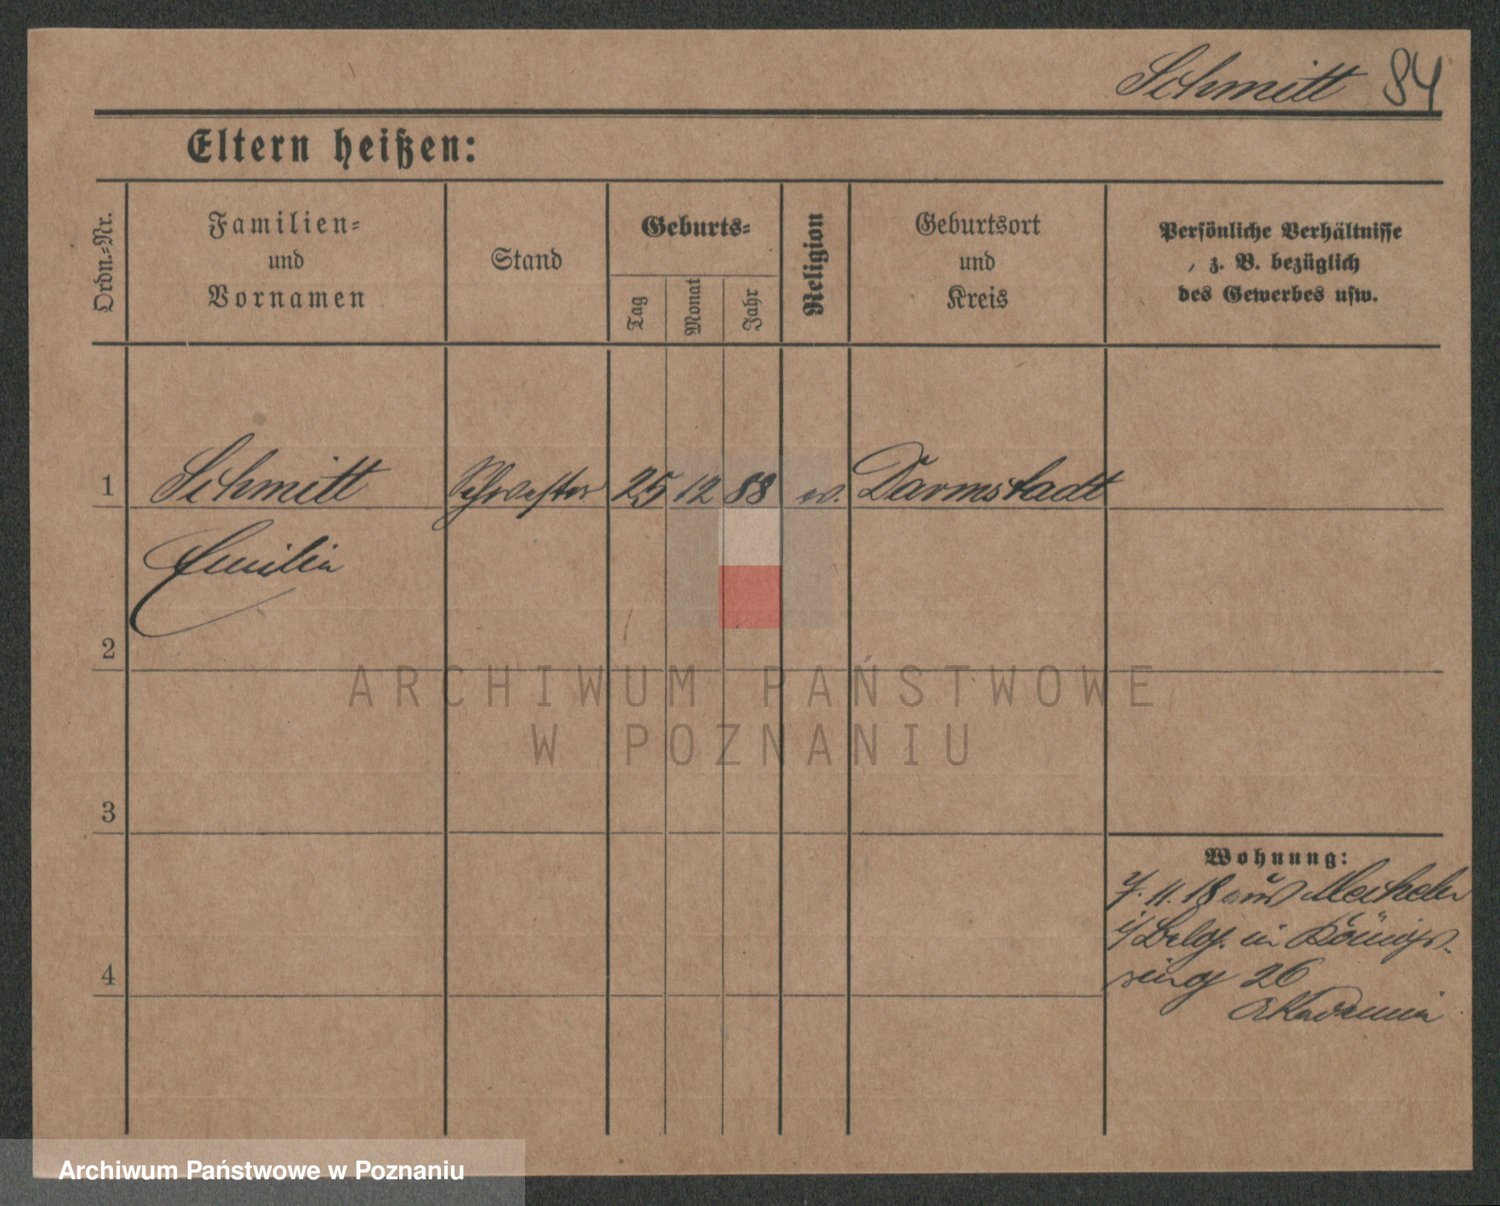 Schmitt 84
Eltern heißen:
Ordn.-Nr.
Familien-
und
Vornamen
Stand
Geburts-
Tag
Monat
Jahr
Religion
Geburtsort
und
Kreis
Persönliche Verhältnisse
z. B. bezüglich
des Gewerbes usw.
1 Schmitt Schwester 25 12 88 ev. Darmstadt
Emilia
2
3
4
Wohnung:
7. 11. 18 aus Mecheln
i/Belg. in Königs-
ring 26
Akademie
ARCHIWUM PAŃSTWOWE
W POZNANIU
Archiwum Państwowe w Poznaniu